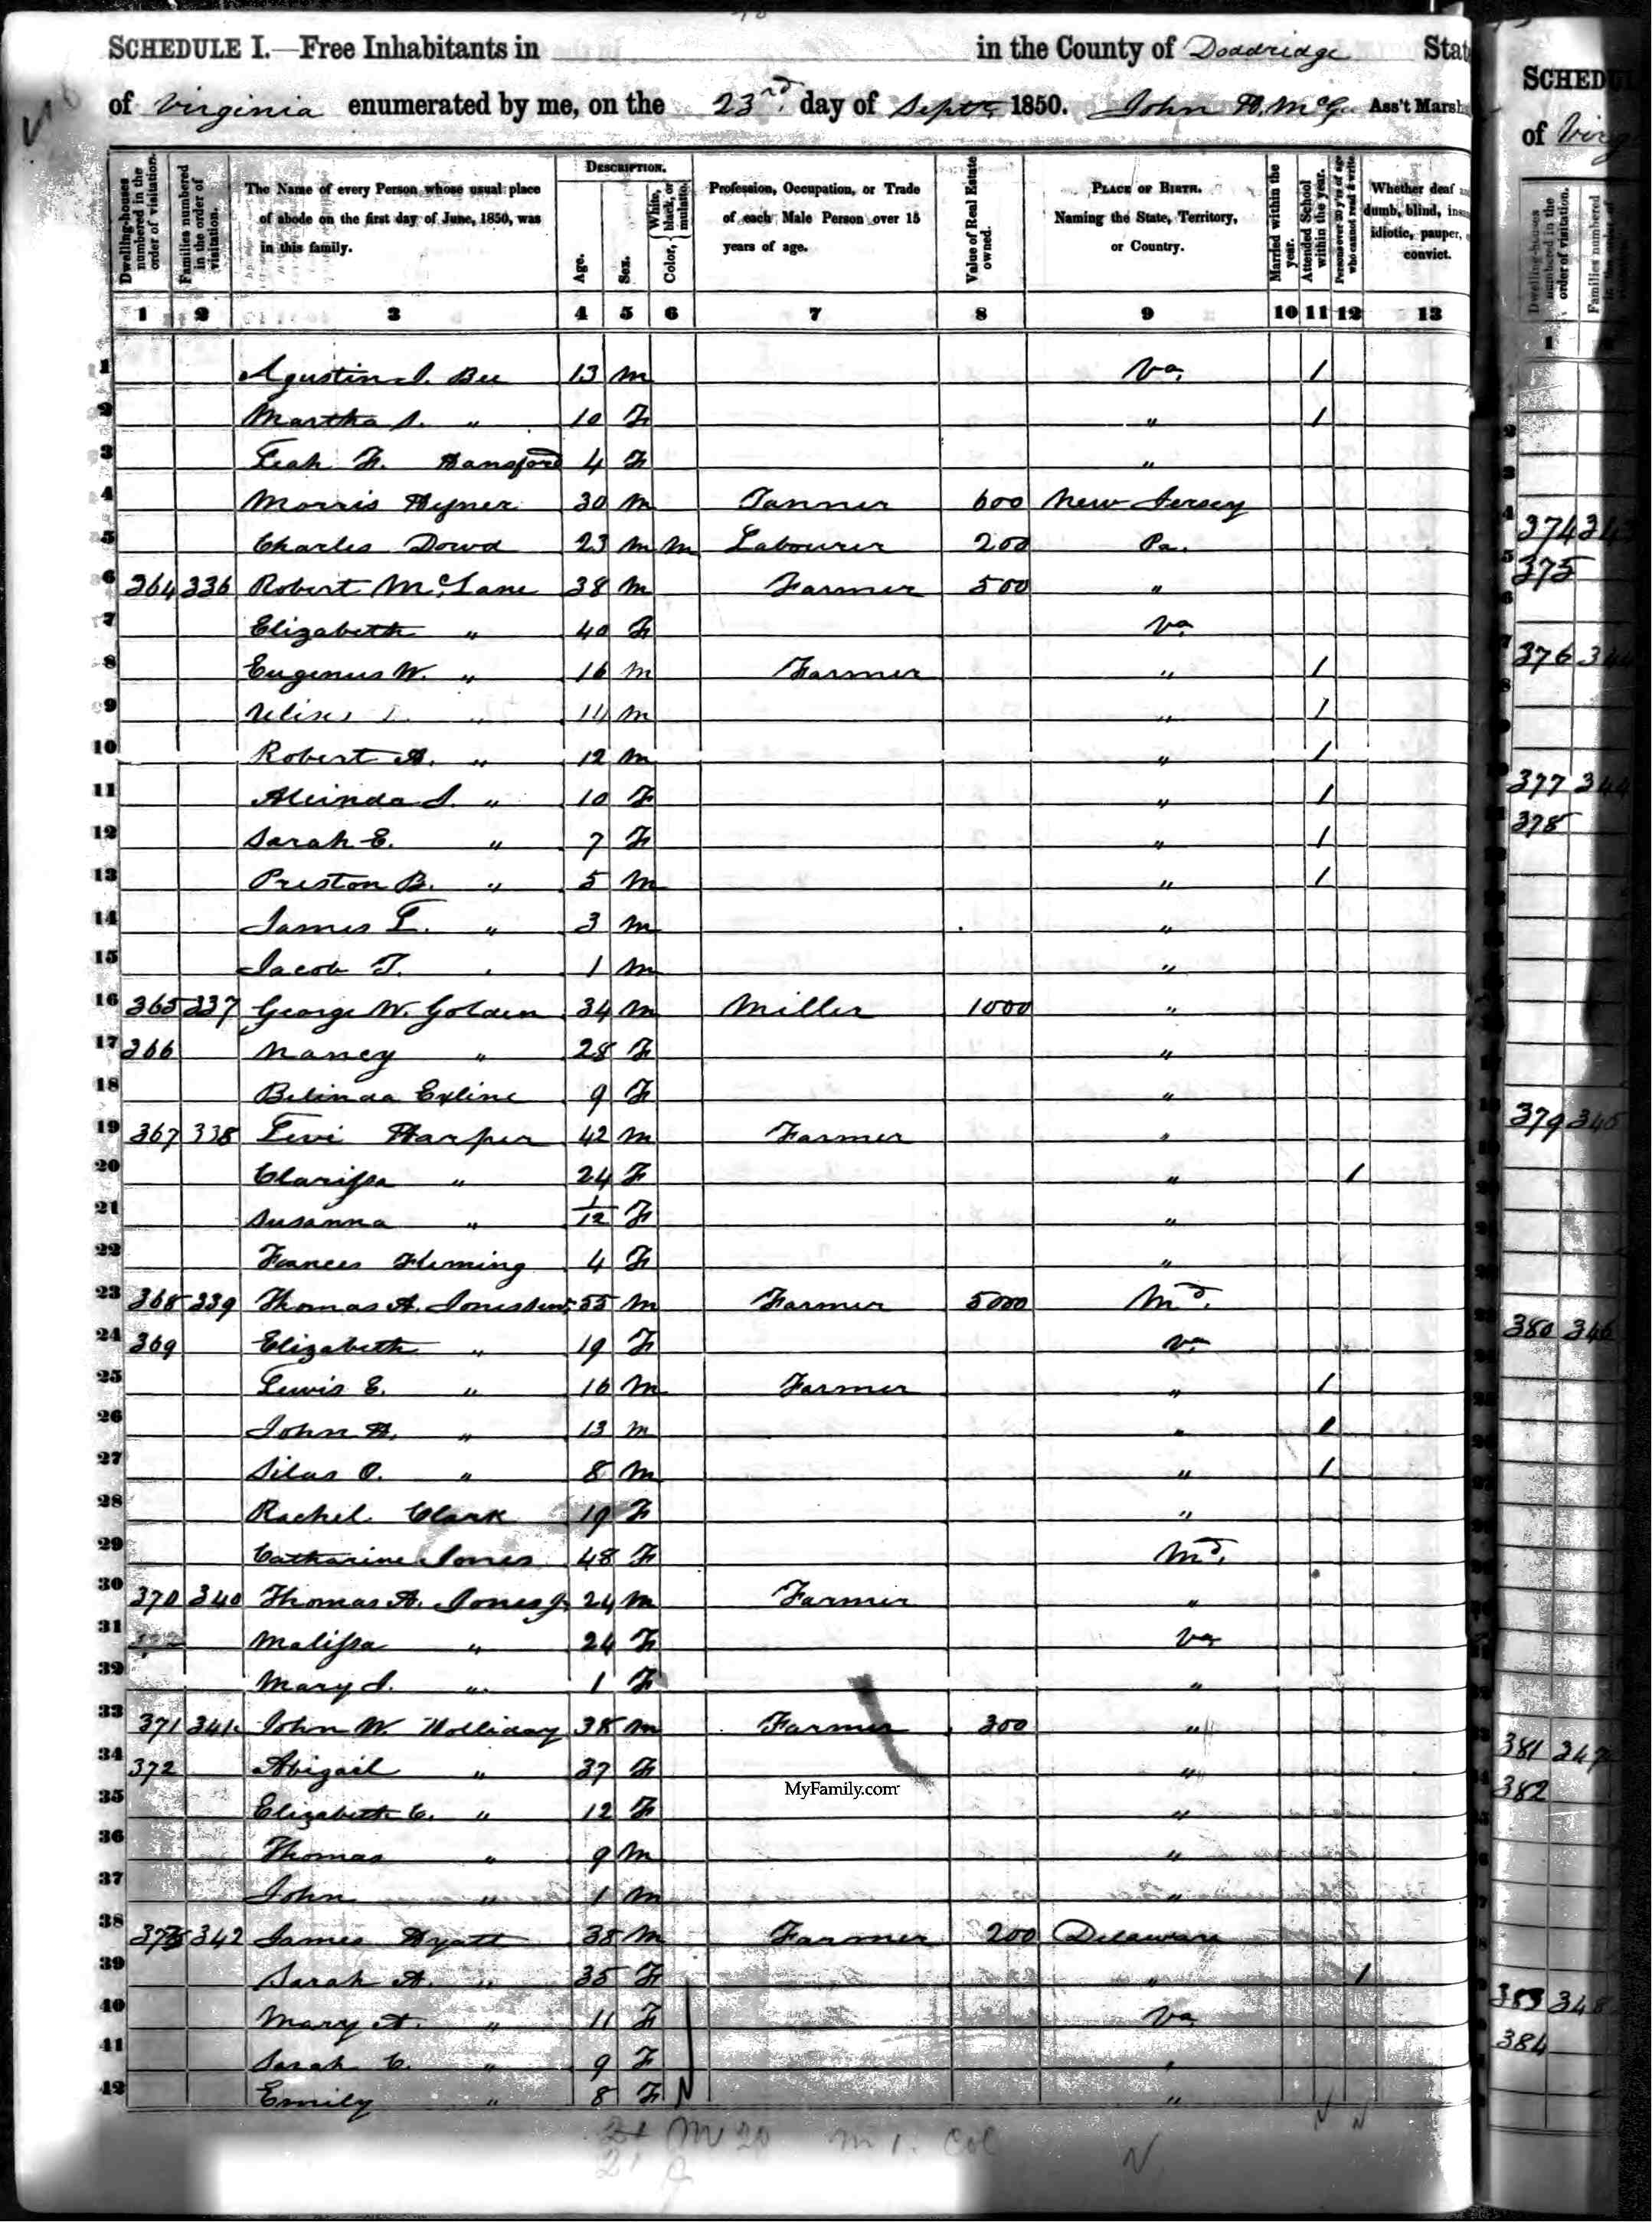 SCHEDULE I.—Free Inhabitants in in the County of Doddridge State
of Virginia enumerated by me, on the 23rd. day of Septr. 1850. John H. McG Ass't Marsh
Dwelling-houses numbered in the order of visitation.
Families numbered in the order of visitation.
The Name of every Person whose usual place of abode on the first day of June, 1850, was in this family.
DESCRIPTION.
Age.
Sex.
Color, White, black, or mulatto.
Profession, Occupation, or Trade of each Male Person over 15 years of age.
Value of Real Estate owned.
PLACE OF BIRTH. Naming the State, Territory, or Country.
Married within the year.
Attended School within the year.
Persons over 20 y'rs of age who cannot read & write
Whether deaf dumb, blind, idiotic, pauper, convict.
1 2 3 4 5 6 7 8 9 10 11 12 13
1 Agustin J. Bee 13 M Va. 1
2 Martha S. " 10 F " 1
3 Leah F. Hansford 4 F "
4 Morris Hyner 30 M Tanner 600 New Jersey
5 Charles Dowd 23 M M Labourer 200 Pa.
6 364 336 Robert McLane 38 M Farmer 500 "
7 Elizabeth " 40 F Va
8 Eugenus W. " 16 M Farmer " 1
9 " 14 M " 1
10 Robert A. " 12 M " 1
11 Alcinda S. " 10 F " 1
12 Sarah E. " 7 F " 1
13 Preston B. " 5 M " 1
14 James L. " 3 M "
15 Jacob T. " 1 M "
16 365 337 George W. Golden 34 M Miller 1000 "
17 366 Nancy " 28 F "
18 Belinda Exline 9 F "
19 367 338 Levi Harper 42 M Farmer "
20 Clarissa " 24 F " 1
21 Susanna " 1/12 F "
22 Frances Fleming 4 F "
23 368 339 Thomas A. Jones Sen. 55 M Farmer 5000 Md.
24 369 Elizabeth " 19 F Va
25 Lewis E. " 16 M Farmer " 1
26 John H. " 13 M " 1
27 Silas O. " 8 M " 1
28 Rachel Clark 19 F "
29 Catharine Jones 48 F Md.
30 370 340 Thomas A. Jones Jr. 24 M Farmer "
31 Malissa " 24 F Va
32 Mary S. " 1 F "
33 371 341 John W. Holliday 38 M Farmer 300 "
34 372 Abigail " 37 F "
35 Elizabeth C. " 12 F "
36 Thomas " 9 M "
37 John " 1 M "
38 373 342 James Hyatt 38 M Farmer 200 Delaware
39 Sarah A. " 35 F " 1
40 Mary A. " 11 F Va
41 Sarah C. " 9 F "
42 Emily " 8 F "
MyFamily.com
M 20 M 1. Col
SCHEDU
of Virg
Dwelling-houses numbered in the order of visitation.
Families numbered
1
374 343
375
376
377 344
378
379 345
380 346
381 347
382
383 348
384